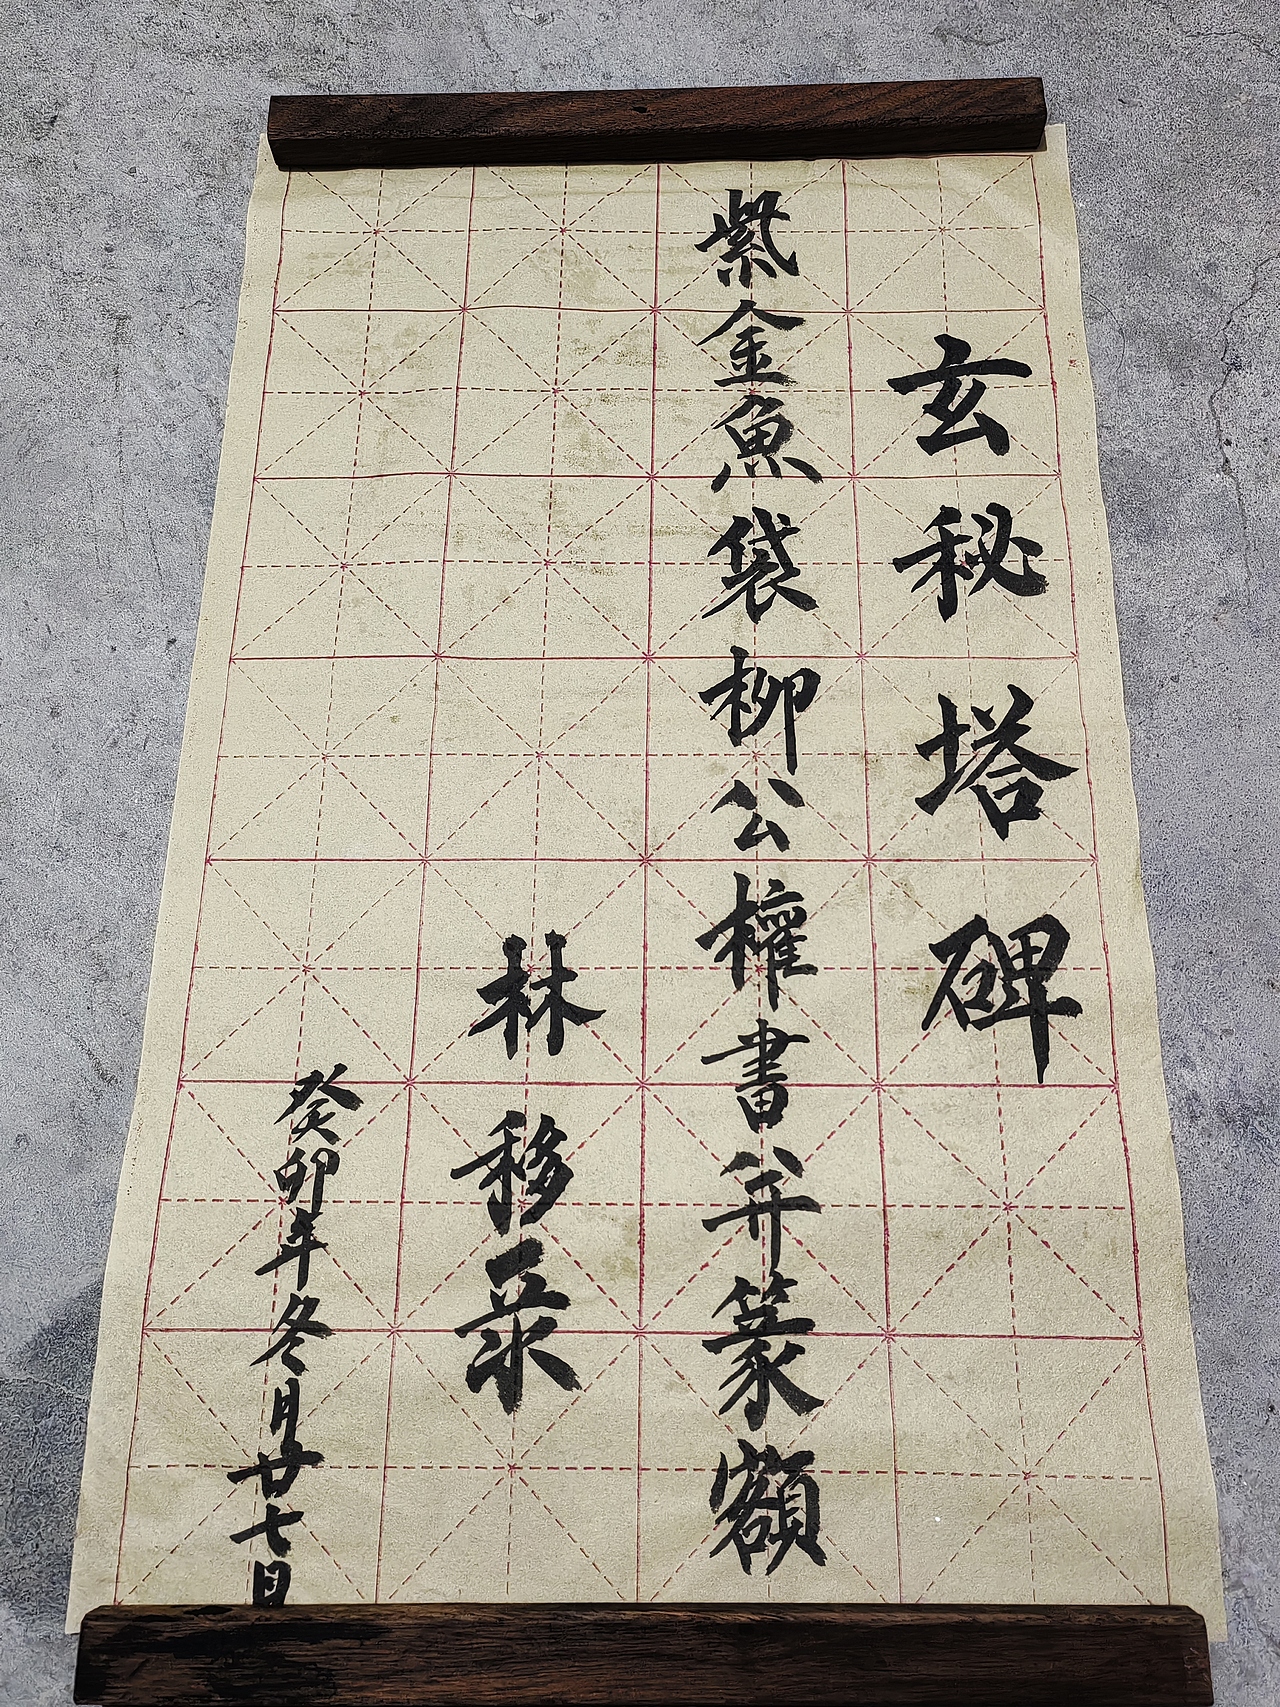 玄秘塔碑
紫金魚袋柳公權書并篆額
林移录
癸卯年冬月廿七日